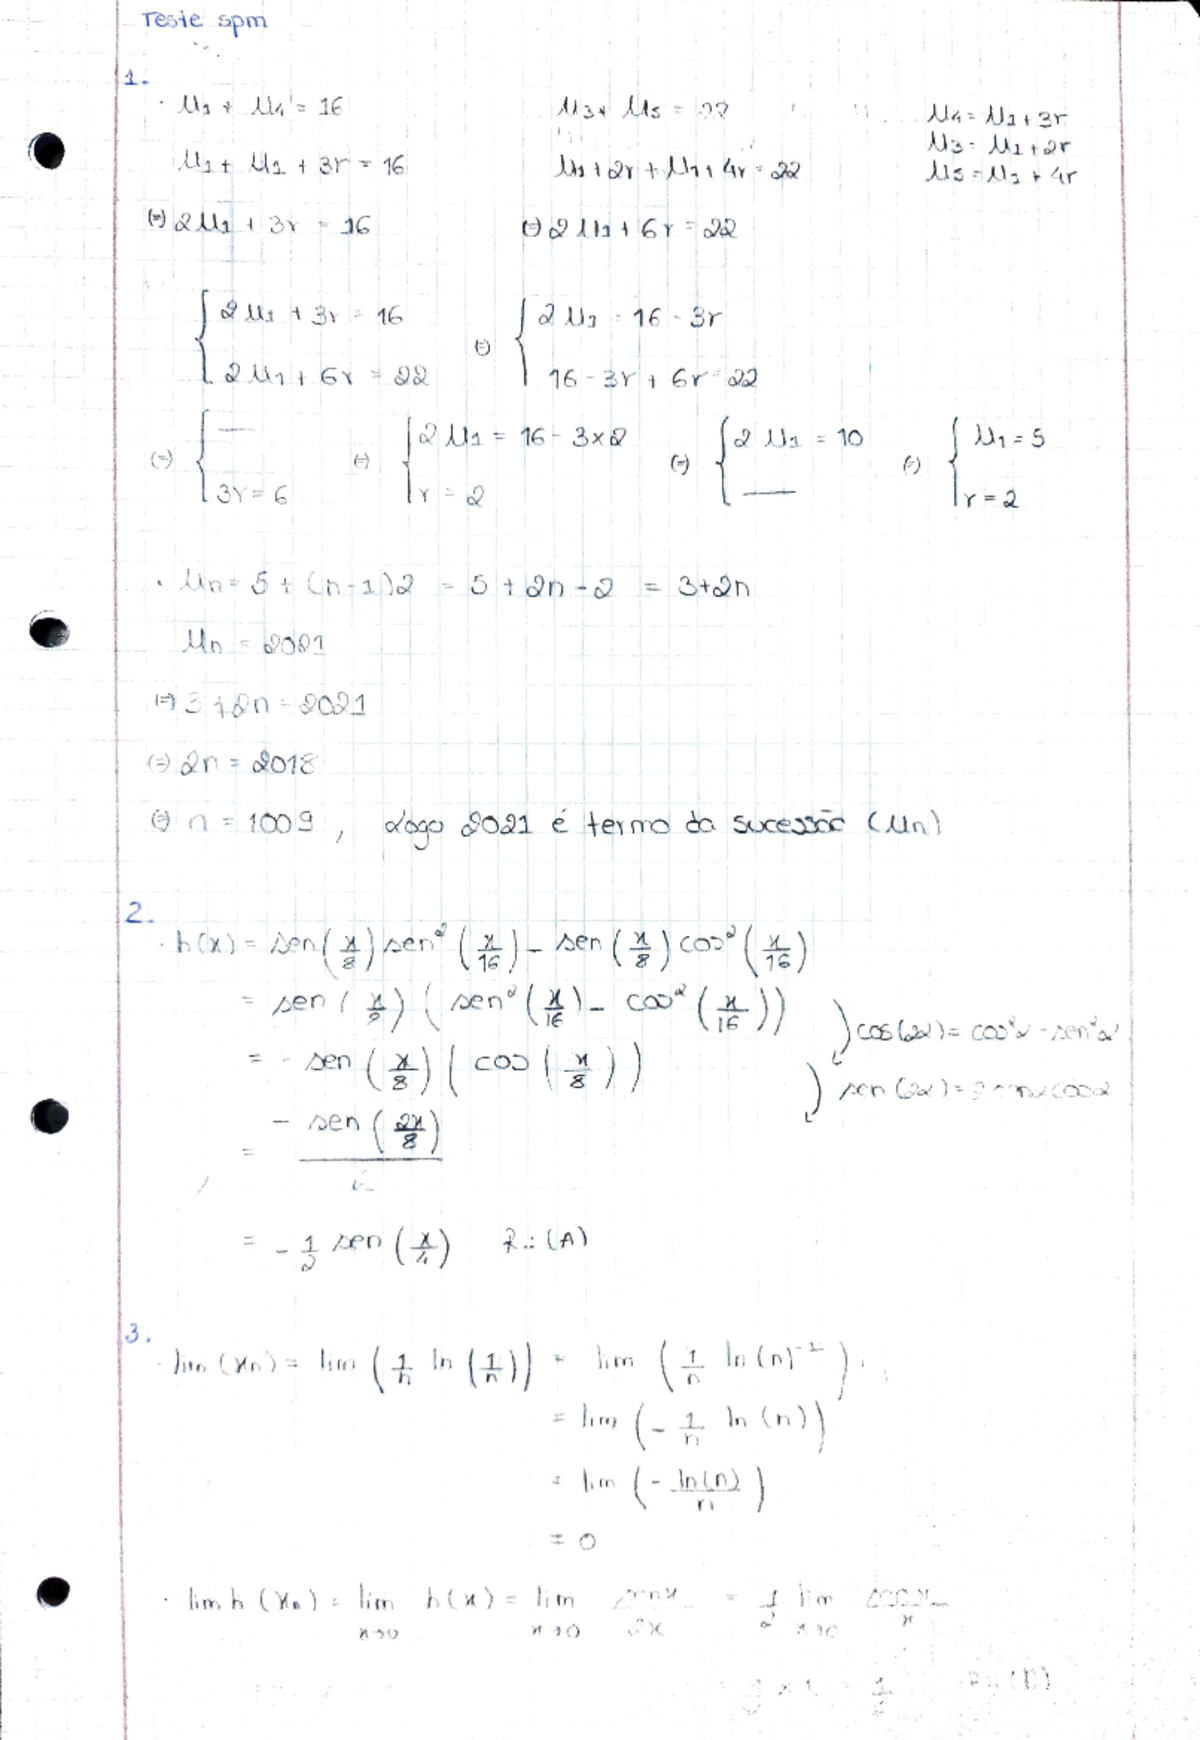 Teste spm
1.
· u₁ + u₄ = 16    u₃ + u₅ = 22    u₄ = u₁ + 3r
u₃ = u₁ + 2r
u₁ + u₁ + 3r = 16    u₁ + 2r + u₁ + 4r = 22    u₅ = u₁ + 4r
(=) 2u₁ + 3r = 16    (=) 2u₁ + 6r = 22
{ 2u₁ + 3r = 16    (=) { 2u₁ = 16 - 3r
{ 2u₁ + 6r = 22    { 16 - 3r + 6r = 22
(=) { ——    (=) { 2u₁ = 16 - 3×2    (=) { 2u₁ = 10    (=) { u₁ = 5
{ 3r = 6    { r = 2    { ——    { r = 2
· un = 5 + (n-1)2 = 5 + 2n - 2 = 3+2n
un = 2021
(=) 3 + 2n = 2021
(=) 2n = 2018
(=) n = 1009, Logo 2021 é termo da sucessão (un)
2.
· h(x) = sen(x/8) sen²(x/16) - sen(x/8) cos²(x/16)
= sen(x/8) (sen²(x/16) - cos²(x/16))    cos(2α) = cos²α - sen²α
= - sen(x/8) (cos(x/8))    sen(2α) = 2 senα cosα
= - sen(2x/8) / 2
= - 1/2 sen(x/4)    R.: (A)
3.
· lim(xn) = lim(1/n ln(1/n)) = lim(1/n ln(n)⁻¹)
= lim(- 1/n ln(n))
= lim(- ln(n)/n)
= 0
· lim h(xn) = lim x→0 h(x) = lim x→0 sen x/2x = 1/2 lim x→0
× 1 = 1/2